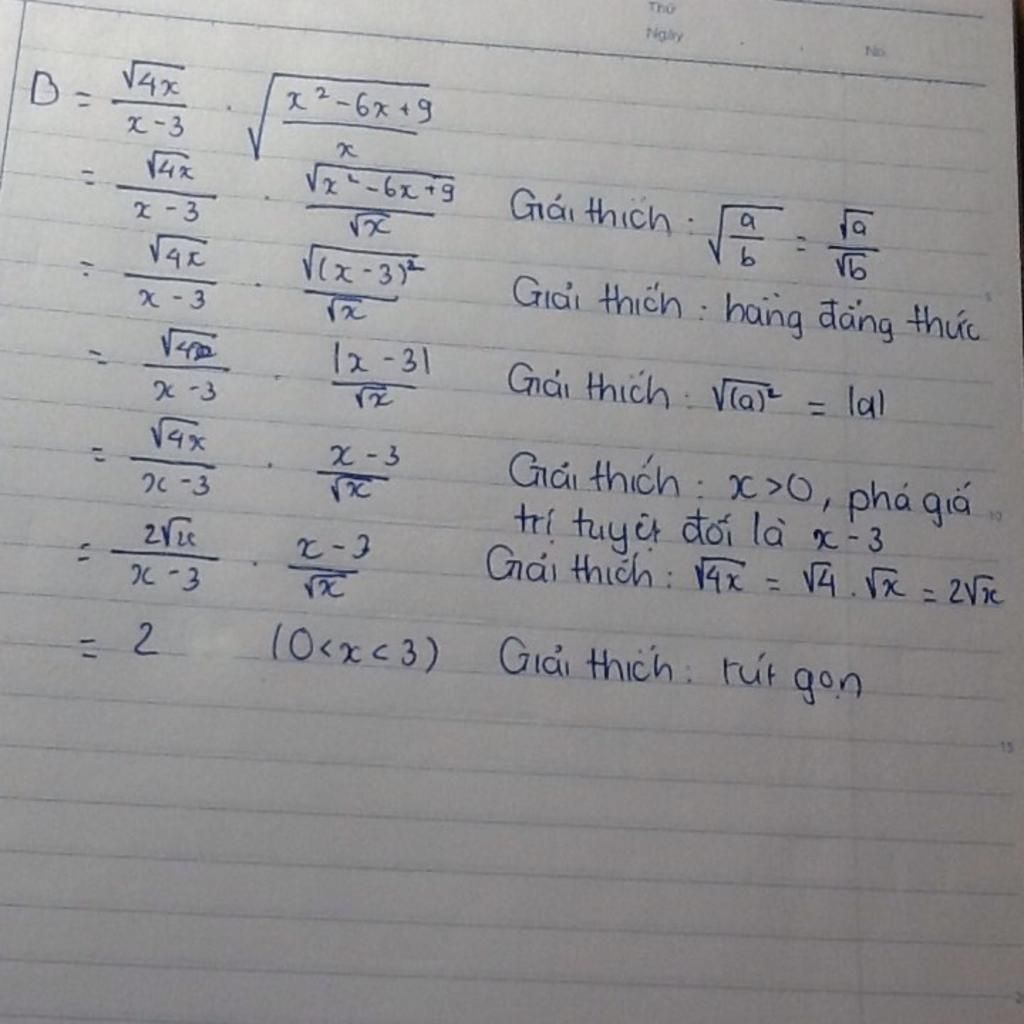 Thứ
Ngày . . No
B = √4x / (x - 3) . √((x² - 6x + 9) / x)
= √4x / (x - 3) . √(x² - 6x + 9) / √x Giải thích : √(a/b) = √a / √b
= √4x / (x - 3) . √(x - 3)² / √x Giải thích : hằng đẳng thức
= √4x / (x - 3) . |x - 3| / √x Giải thích : √(a)² = |a|
= √4x / (x - 3) . (x - 3) / √x Giải thích : x > 0, phá giá
trị tuyệt đối là x - 3
= 2√x / (x - 3) . (x - 3) / √x Giải thích : √4x = √4 . √x = 2√x
= 2 (0 < x < 3) Giải thích : rút gọn
15